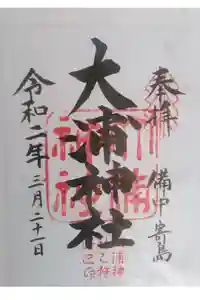 奉拝
備中寄島
大浦神社
令和二年三月二十一日